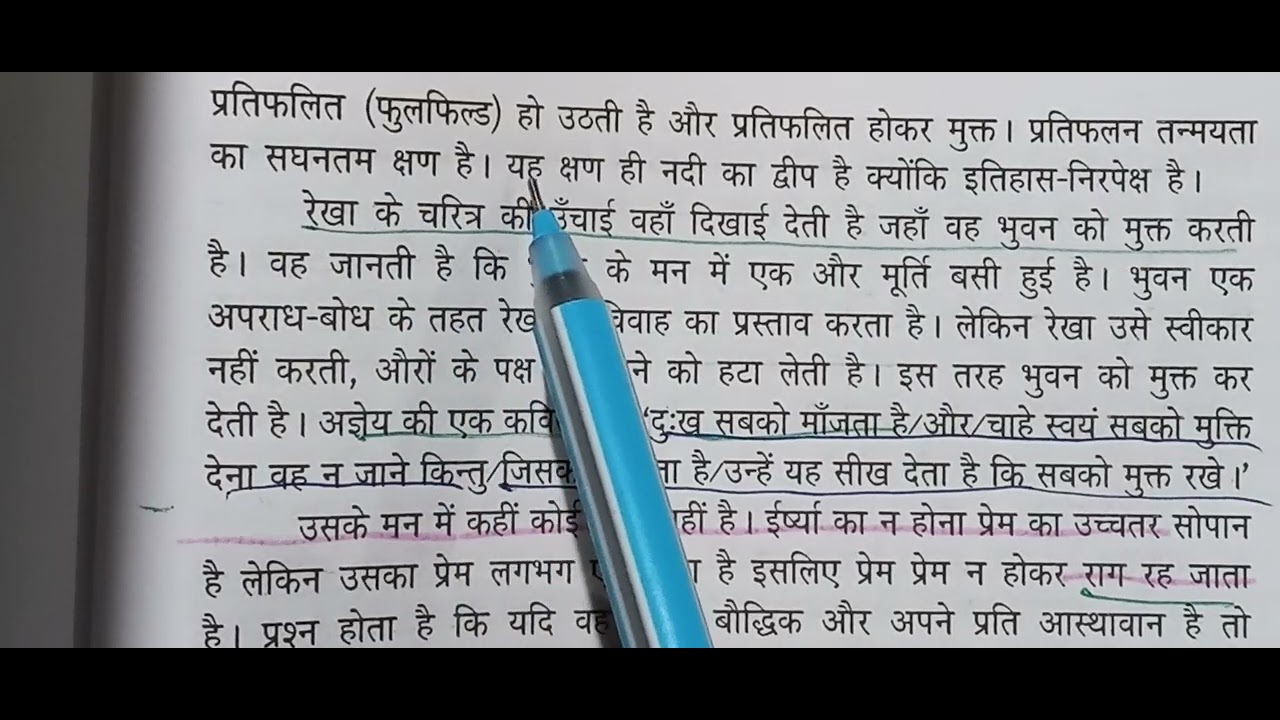 प्रतिफलित (फुलफिल्ड) हो उठती है और प्रतिफलित होकर मुक्त। प्रतिफलन तन्मयता
का सघनतम क्षण है। यह क्षण ही नदी का द्वीप है क्योंकि इतिहास-निरपेक्ष है।
रेखा के चरित्र की ऊँचाई वहाँ दिखाई देती है जहाँ वह भुवन को मुक्त करती
है। वह जानती है कि के मन में एक और मूर्ति बसी हुई है। भुवन एक
अपराध-बोध के तहत विवाह का प्रस्ताव करता है। लेकिन रेखा उसे स्वीकार
नहीं करती, औरों के पक्ष को हटा लेती है। इस तरह भुवन को मुक्त कर
देती है। अज्ञेय की एक 'दुःख सबको माँजता है/और/चाहे स्वयं सबको मुक्ति
देना वह न जाने किन्तु/ है/उन्हें यह सीख देता है कि सबको मुक्त रखे।'
उसके मन में कहीं कोई है। ईर्ष्या का न होना प्रेम का उच्चतर सोपान
है लेकिन उसका प्रेम लगभग है इसलिए प्रेम प्रेम न होकर राग रह जाता
है। प्रश्न होता है कि यदि वह बौद्धिक और अपने प्रति आस्थावान है तो